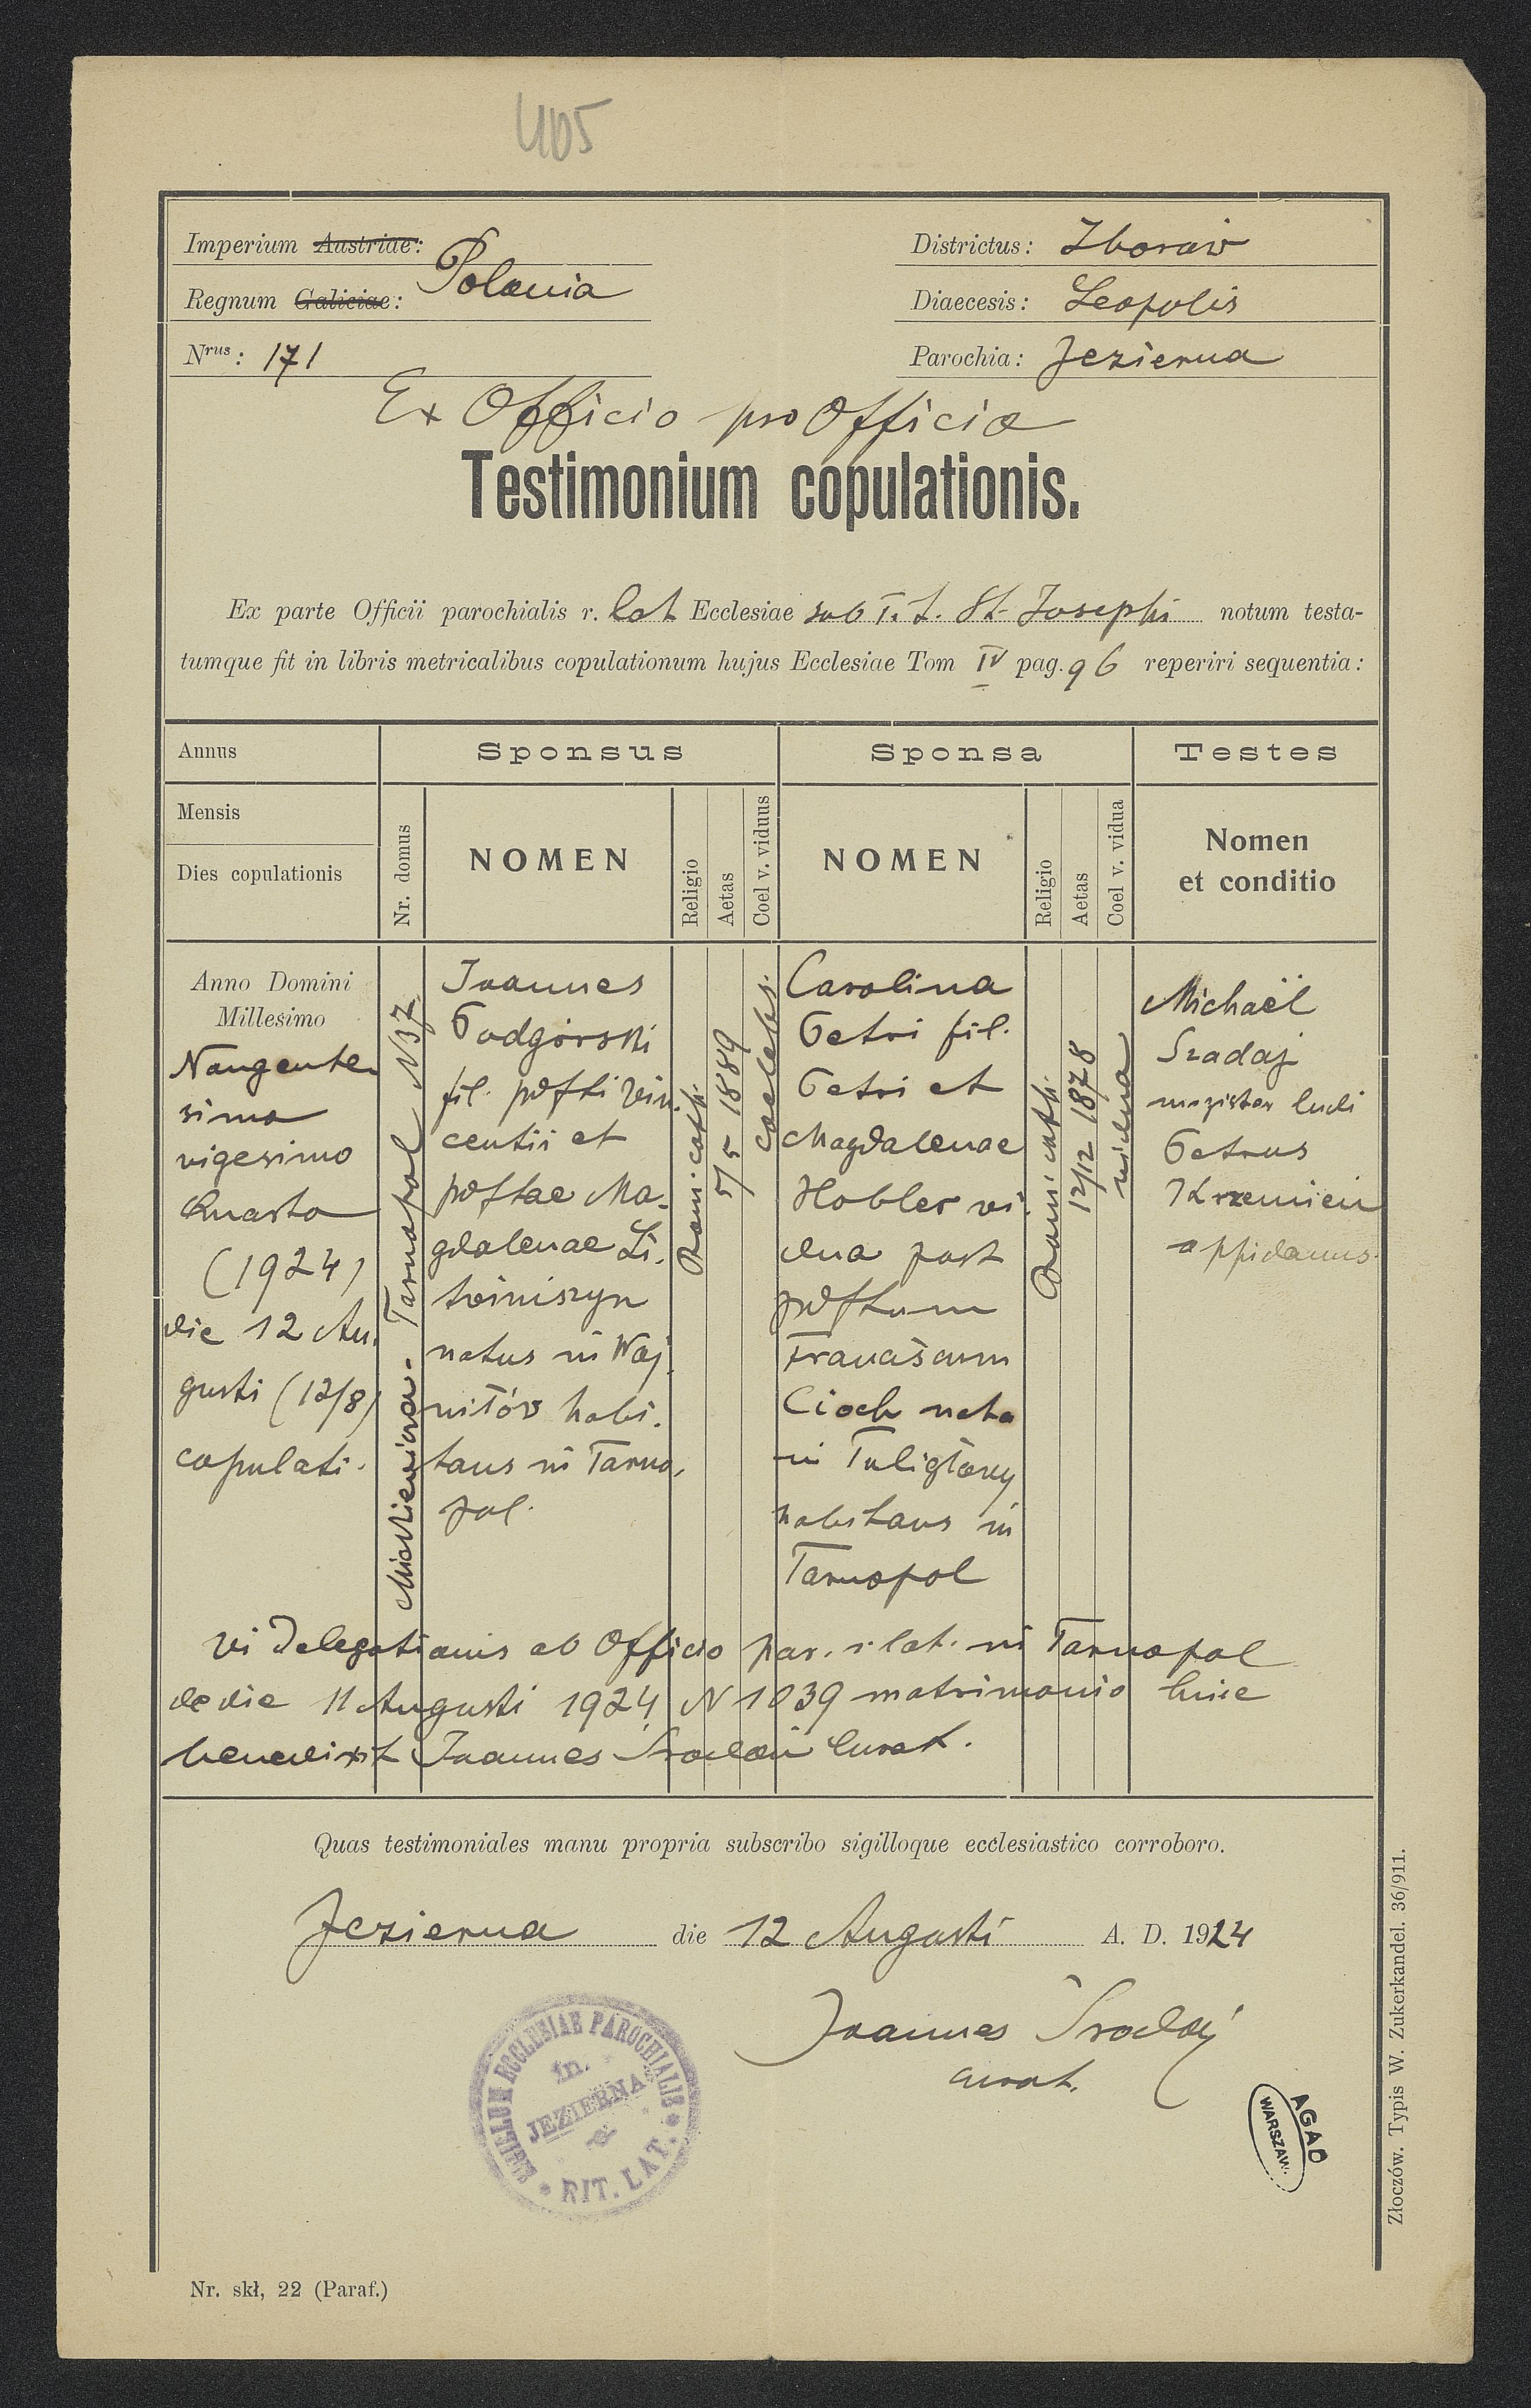 405
Imperium Austriae:
Polonia
Regnum Galiciae:
Nrus: 171
Districtus: Zborów
Diaecesis: Leopolis
Parochia: Jezierna
Ex Officio pro Officio
Testimonium copulationis.
Ex parte Officii parochialis r. lat Ecclesiae sub T. t. St. Josephi notum testa-
tumque fit in libris metricalibus copulationum hujus Ecclesiae Tom IV pag. 96 reperiri sequentia:
Annus
Mensis
Dies copulationis
Sponsus
Nr. domus
NOMEN
Religio
Aetas
Coel v. viduus
Sponsa
NOMEN
Religio
Aetas
Coel v. vidua
Testes
Nomen
et conditio
Anno Domini
Millesimo
Nongente
simo
vigesimo
Quarto
(1924)
die 12 Au.
gusti (12/8)
copulati.
Mickiewicza. Tarnopol N 37
Joannes
Podgórski
fil. pdfti Vin.
centii et
pdftae Ma.
gdalenae Li.
twiniszyn
natus in Woj.
nitów habi.
tans in Tarno.
pol.
Rom. cath.
5/5 1889
coelebs.
Carolina
Petri fil.
Petri et
Magdalenae
Hobler vi.
dua post
pdftum
Franciscum
Cioch nata
in Tuligłowy
habitans in
Tarnopol
Rom. cath.
12/12 1878
vidua
Michaël
Szadaj
magister ludi
Petrus
Krzemień
oppidanus.
Vi Delegationis ab Officio par. r. lat. in Tarnopol
de die 11 Augusti 1924 N 1039 matrimonio huic
benedixit Joannes curat.
Quas testimoniales manu propria subscribo sigilloque ecclesiastico corroboro.
Jezierna die 12 Augusti A. D. 1924
Joannes
curat.
SIGILLUM ECCLESIAE PAROCHIALIS
in
JEZIERNA
RIT. LAT.
AGAD
WARSZAW.
Złoczów. Typis W. Zukerkandel. 36/911.
Nr. skł, 22 (Paraf.)